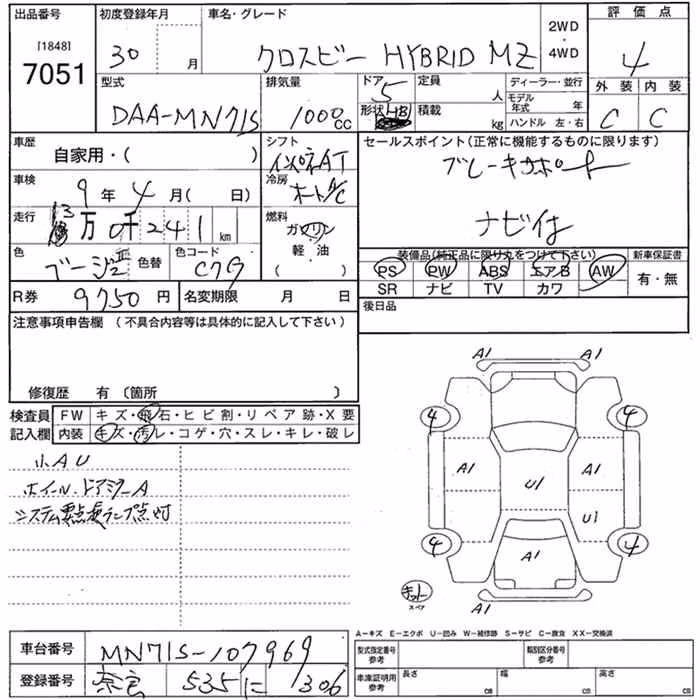 出品番号 初度登録年月 車名・グレード 2WD・4WD 評価点
[1848]
7051 30 月 クロスビー HYBRID MZ 4
型式 排気量 ドア 5 定員 人 ディーラー・並行 外装 内装
DAA-MN71S 1000cc 形状 HB 積載 kg モデル年式 年 C C
ハンドル 左・右
車歴 自家用・( ) シフト インパネAT セールスポイント(正常に機能するものに限ります)
車検 9年 4月( 日) 冷房 オートA/C ブレーキサポート
走行 13万 0千 241 km 燃料 ガソリン ナビ付
軽・油
( )
色 ベージュⅡ 色替 色コード C7G 装備品(純正品に限り丸をつけて下さい) 新車保証書
PS PW ABS エアB AW 有・無
SR ナビ TV カワ
R券 9750 円 名変期限 月 日 後日品
注意事項申告欄 (不具合内容等は具体的に記入して下さい)
修復歴 有 〔箇所 〕
検査員 FW キズ・飛石・ヒビ割・リペア跡・X要
記入欄 内装 キズ・汚レ・コゲ・穴・スレ・キレ・破レ
小AU
ホイール、ドアミラーA
システム要点検ランプ点灯
A1 A1
4 4
A1 U1 A1
U1
4 A1 4
キット
スペア A1
A-キズ E-エクボ U-凹み W-補修跡 S-サビ C-腐食 XX-交換済
車台番号 MN71S-107969 型式指定番号 参考 類別区分番号 参考
登録番号 奈良 535 に 306 車庫証明用 参考 長さ cm 幅 cm 高さ cm